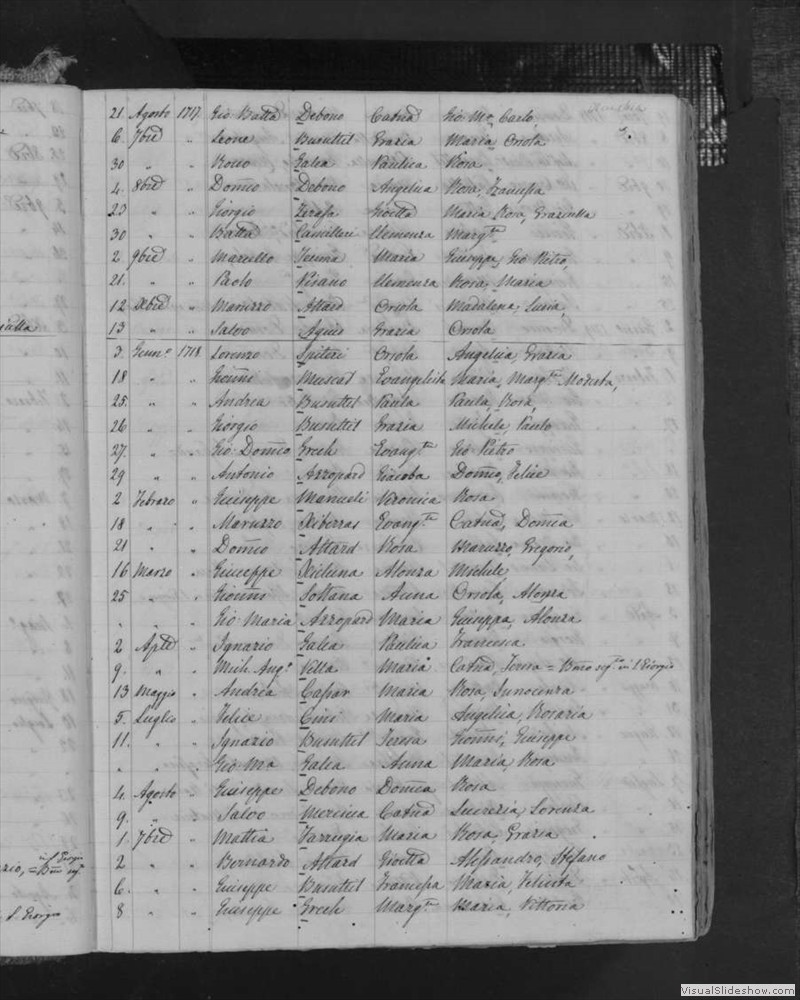 21 Agosto 1717 Gio Batta Debono Catnā Gio Ma, Carlo,
6 7bre " Leone Busuttil Grazia Maria, Orsola
30 " " Galea Paulica Rosa
4 8bre " Domco Debono Angelica Rosa, Francsa
23 " " Giorgio Zerafa Gioetta Maria Rosa, Graziulla
30 " " Batta Camilleri Clemenza Margta
2 9bre " Marcello Maria Giuseppa, Gio Pietro,
21 " " Paolo Pisano Clemenza Rosa, Maria
12 Xbre " Maruzzo Attard Orsola Madalena, Lucia,
13 " " Salvo Agius Grazia Orsola
3 Genno 1718 Lorenzo Spiteri Orsola Angelica, Grazia
18 " " Gionni Muscat Evangelista Maria, Margta Modesta,
25 " " Andrea Busuttil Paula Paula, Rosa,
26 " " Giorgio Busuttil Grazia Michele, Paulo
27 " " Gio Domco Grech Evangta Gio Pietro
29 " " Antonio Azzopard Giacoba Domco, Felice
2 Febraro " Giuseppe Manueli Veronica Rosa
18 " " Maruzzo Xiberras Evangta Catnā, Domca
21 " " Domco Attard Rosa Maruzzo, Gregorio,
16 Marzo " Giuseppe Xicluna Alonza Michele
25 " " Gionni Soltana Anna Orsola, Alonza
" " " Gio Maria Azzopard Maria Giuseppa, Alonza
2 Aple " Ignazio Galea Paulica Francesca
9 " " Mich. Ango Vella Maria Catnā, Teresa = in S. Giorgio
13 Maggio " Andrea Caspar Maria Rosa, Innocenza
5 Luglio " Felice Cini Maria Angelica, Rosaria
11 " " Ignazio Busuttil Teresa Gionni, Giuseppe
" " " Gio Ma Galea Anna Maria, Rosa
4 Agosto " Giuseppe Debono Domca Rosa
9 " " Salvo Mercieca Catnā Lucrezia, Lorenza
1 7bre " Mattia Farrugia Maria Rosa, Grazia
2 " " Bernardo Attard Gioetta Alessandro, Stefano
6 " " Giuseppe Busuttil Francsa Maria, Felicita
8 " " Giuseppe Grech Margta Maria, Vittoria
in S. Giorgio
S. Giorgio
VisualSlideshow.com